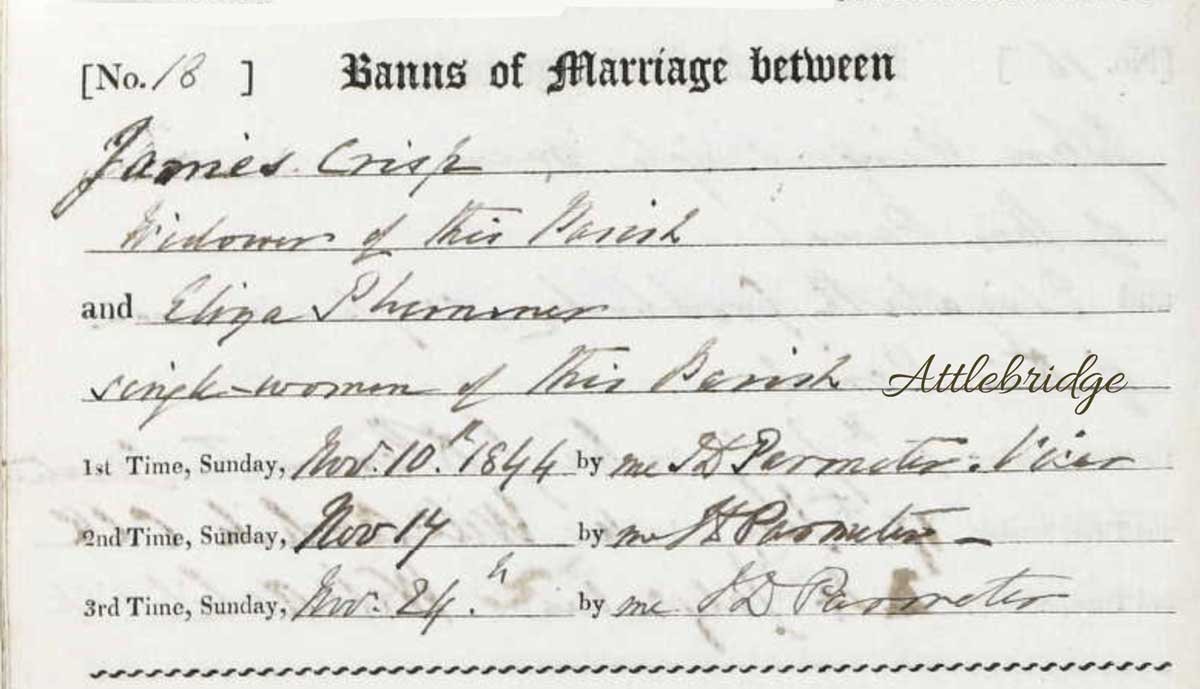 [No. 18 ] Banns of Marriage between
James Crisp
Widower of this Parish
and Eliza Plummer
single-woman of this Parish Attlebridge
1st Time, Sunday, Nov. 10.th 1844 by me Parmeter. Vicar
2nd Time, Sunday, Nov 17 by me Parmeter
3rd Time, Sunday, Nov. 24.th by me J D Parmeter